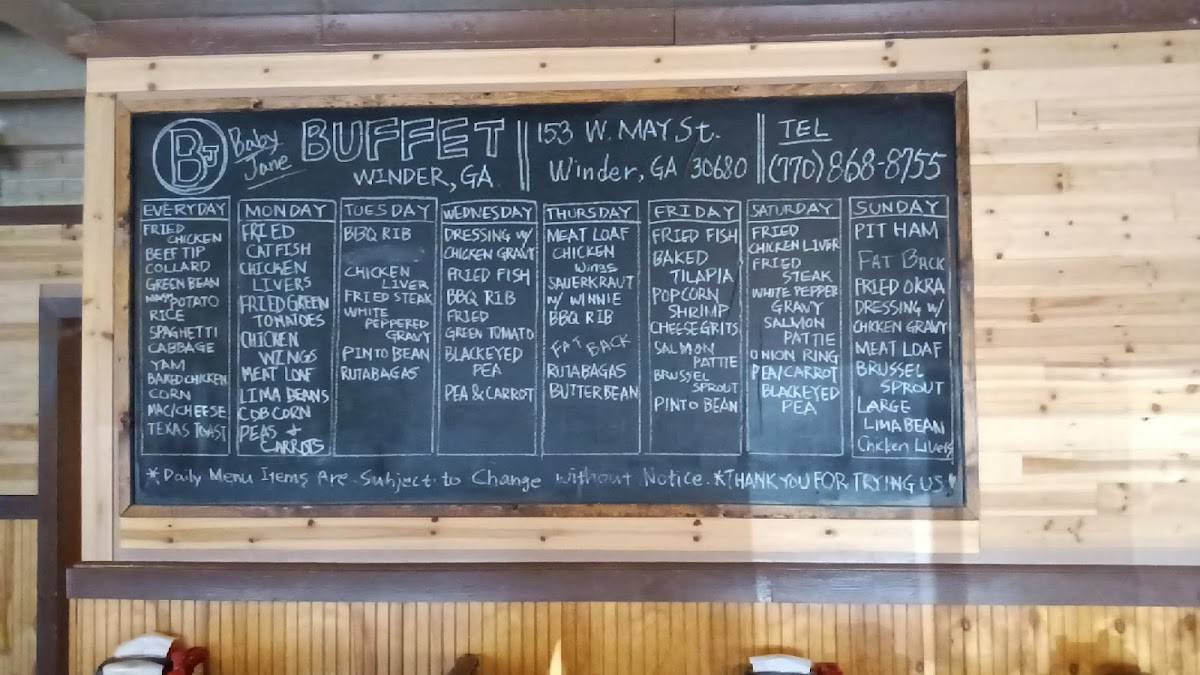 BJ Baby Jane BUFFET
WINDER, GA
153 W. MAY St.
Winder, GA 30680
TEL
(770) 868-8755
EVERYDAY
FRIED
CHICKEN
BEEF TIP
COLLARD
GREEN BEAN
POTATO
RICE
SPAGHETTI
CABBAGE
YAM
BAKED CHICKEN
CORN
MAC/CHEESE
TEXAS TOAST
MONDAY
FRIED
CATFISH
CHICKEN
LIVERS
FRIED GREEN
TOMATOES
CHICKEN
WINGS
MEAT LOAF
LIMA BEANS
COB CORN
PEAS &
CARROTS
TUESDAY
BBQ RIB
CHICKEN
LIVER
FRIED STEAK
WHITE
PEPPERED
GRAVY
PINTO BEAN
RUTABAGAS
WEDNESDAY
DRESSING W/
CHICKEN GRAVY
FRIED FISH
BBQ RIB
FRIED
GREEN TOMATO
BLACKEYED
PEA
PEA & CARROT
THURSDAY
MEAT LOAF
CHICKEN
Wings
SAUERKRAUT
W/ WINNIE
BBQ RIB
FAT BACK
RUTABAGAS
BUTTER BEAN
FRIDAY
FRIED FISH
BAKED
TILAPIA
POPCORN
SHRIMP
CHEESE GRITS
SALMON
PATTIE
BRUSSEL
SPROUT
PINTO BEAN
SATURDAY
FRIED
CHICKEN LIVER
FRIED
STEAK
WHITE PEPPER
GRAVY
SALMON
PATTIE
ONION RING
PEA/CARROT
BLACKEYED
PEA
SUNDAY
PIT HAM
FAT BACK
FRIED OKRA
DRESSING W/
CHKEN GRAVY
MEAT LOAF
BRUSSEL
SPROUT
LARGE
LIMA BEAN
Chicken Livers
*Daily Menu Items Are Subject to Change without Notice. *THANK YOU FOR TRYING US!